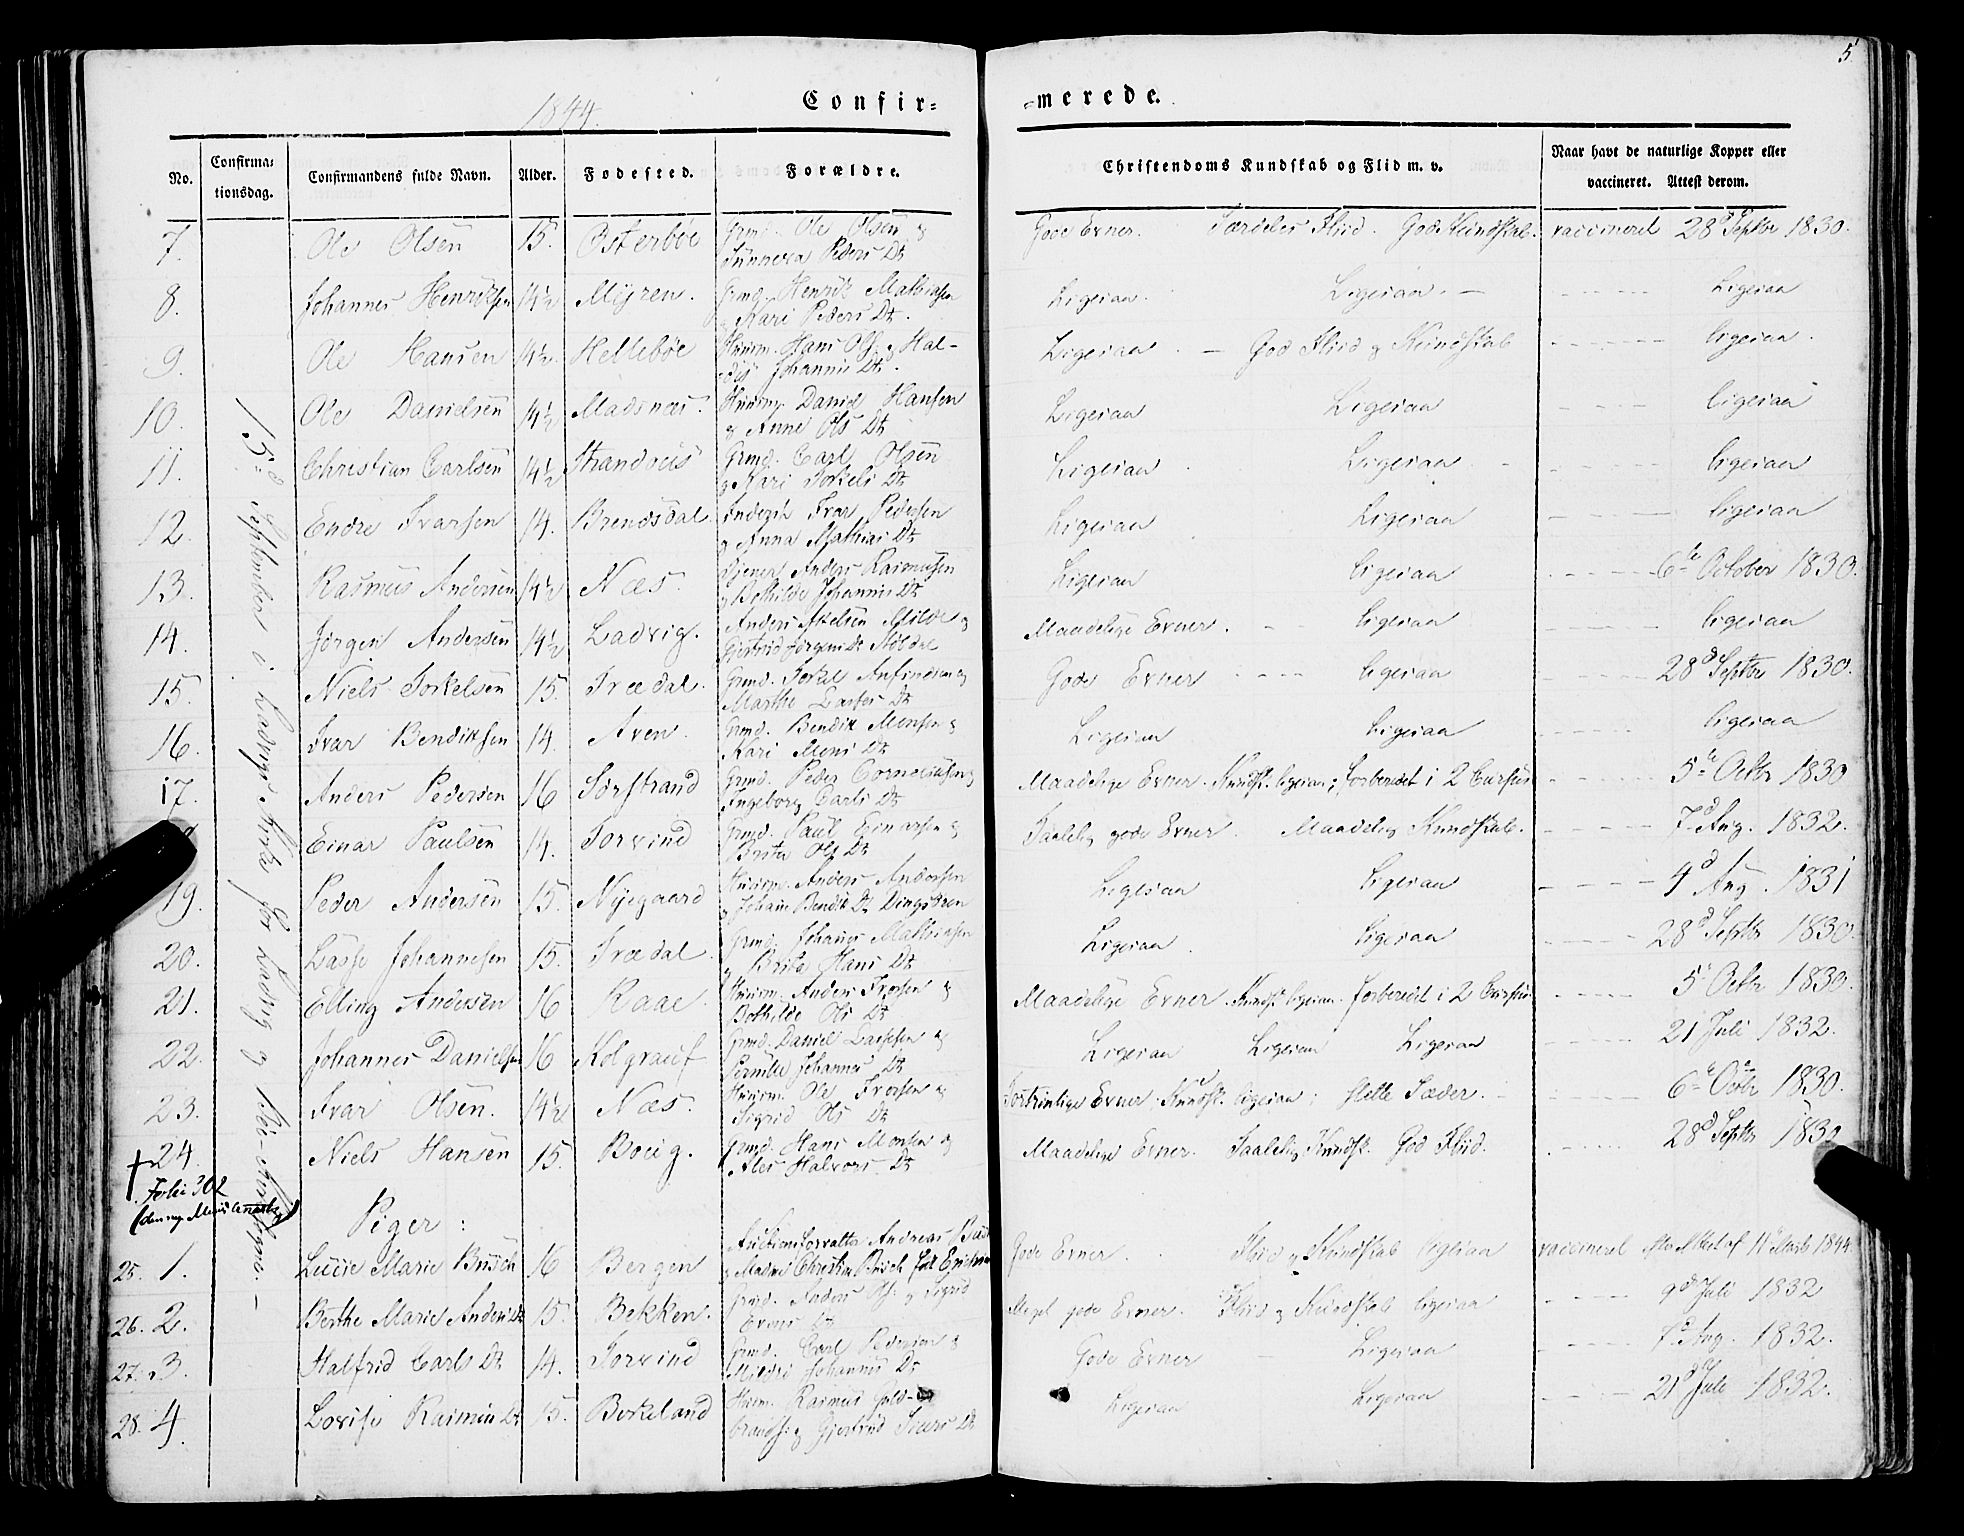 5
1844.
Confir-
-merede.
No.
Confirma-
tionsdag.
Confirmandens fulde Navn.
Alder.
Fødested.
Forældre.
Christendoms Kundskab og Flid m. v.
Naar havt de naturlige Kopper eller
vaccineret. Attest derom.
15d September i Ladvigs Kirke for Ladvig og
7. Ole Olsen 15. Østerbøe Grmd. Ole Olsen og
Sunneva Peders Dt
Gode Evner. Særdeles Fliid. God Kundskab. vaccineret 28d Septbr 1830.
8. Johannes Henriksen 14½ Myren. Grmd. Henrik Mathiasen
og Kari Peders Dt.
Ligesaa. Ligesaa. - Ligesaa
9. Ole Hansen 14½ Hellebøe Huusm. Hans Ols. og Hal-
Johannes Dt.
Ligesaa. - God Fliid og Kundskab ligesaa.
10. Ole Danielsen 14½ Madsnæs. Huusm. Daniel Hansen
og Anne Ols Dt
Ligesaa Ligesaa ligesaa
11. Christian Carlsen 14½ Strandous Grmd. Carl Olsen
og Kari Torkels Dt
Ligesaa. Ligesaa. ligesaa
12. Endre Ivarsen 14. Brendsdal. Inderst Ivar Pedersen
og Anna Mathias Dt
Ligesaa Ligesaa ligesaa
13. Rasmus Andersen 14½ Næs. Tjener Anders Rasmussen
og Bothilde Johannes Dt
Ligesaa ligesaa 6te October 1830.
14. Jørgen Andersen 14½ Ladvig. Anders Axelsen Milde og
Gjertrud Jørgens Dt
Maadelige Evner. - - ligesaa ligesaa
15. Niels Torkelsen 15. Trædal. Grmd. Torkel Anfindsen og
Marthe Lasses Dt
Gode Evner ligesaa 28d Septbr 1830.
16. Ivar Bendiksen 14. Aven. Grmd. Bendik Monsen og
Kari Mons Dt
Ligesaa ligesaa ligesaa
17. Anders Pedersen 16 Sørstrand Grmd. Peder Corneliusen og
Ingeborg Carls Dt
Maadelige Evner. Kundsk. ligesaa; forberedet i 2 Cursus 5te Octbr 1830
Einar Paulsen 14. Torvund Grmd. Paul Einarsen og
Brita Ols Dt
Taalelig gode Evner. Maadelig Kundskab. 7d Aug. 1832.
19. Peder Andersen 15. Nyegaard Huusm. Anders Andersen
og Bendik Dt
Ligesaa ligesaa 4d Aug. 1831
20. Lasse Johannesen 15. Trædal. Grmd. Johannes Mathiasen
og Brita Hans Dt
Ligesaa. ligesaa 28d Septbr 1830.
21. Elling Andersen 16 Raae. Huusm. Anders Iversen og
Bothilde Ols Dt
Maadelige Evner. Kundsk. ligesaa. forberedet i 2 Cursus 5te Octbr 1830.
22. Johannes Danielsen 16 Kolgrauf Grmd. Daniel Lassesen og
Pernille Johannes Dt
Ligesaa Ligesaa Ligesaa 21 Juli 1832.
23. Ivar Olsen. 14½ Næs. Huusm. Ole Iversen og
Sigrid Ols Dt
Evner; Kundsk. ligesaa; slette Sæder. 6te Octbr 1830.
24. Niels Hansen 15. Grmd. Hans Monsen og
Halvors Dt
Maadelige Evner. Taalelig Kundsk. God Fliid. 28d Septbr 1830
Folio 302
Piger:
25. 1. Lucie Marie Busch 16 Bergen Auctionsforvalter Andreas
og Madme Christine Busch
Gode Evner. Fliid og Kundskab ligesaa vaccineret 1844.
26. 2. Berthe Marie Anders Dt 15. Bekken. Grmd. Anders Ols. og Sigrid
Dt
Meget gode Evner. Fliid og Kundskab ligesaa 9d Juli 1832
27. 3. Halfrid Carls Dt 14. Torvund Grmd. Carl Pedersen og
Johannes Dt
Gode Evner - Ligesaa 7d Aug. 1832.
28. 4. Lovise Rasmus Dt 15. Birkeland Huusm. Rasmus Guld-
brands. og Gjertrud Dt
Ligesaa Ligesaa 21d Juli 1832.